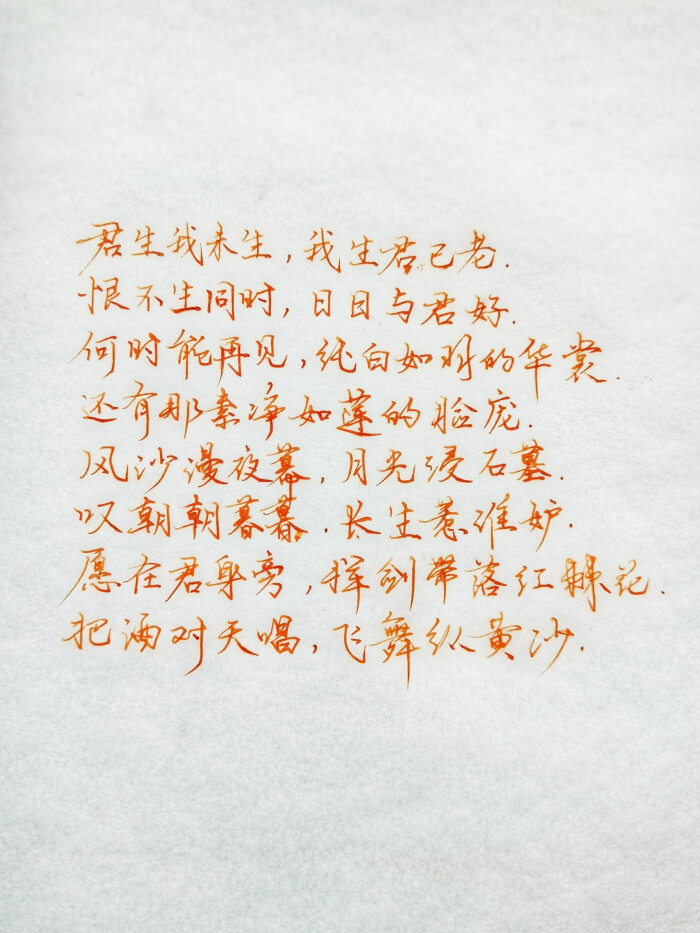 君生我未生，我生君已老.
恨不生同时，日日与君好.
何时能再见，纯白如羽的华裳.
还有那素净如莲的脸庞.
风沙漫夜幕，月光浸石墓.
叹朝朝暮暮.长生惹谁妒.
愿在君身旁，挥剑带落红棘花.
把酒对天唱，飞舞纵黄沙.